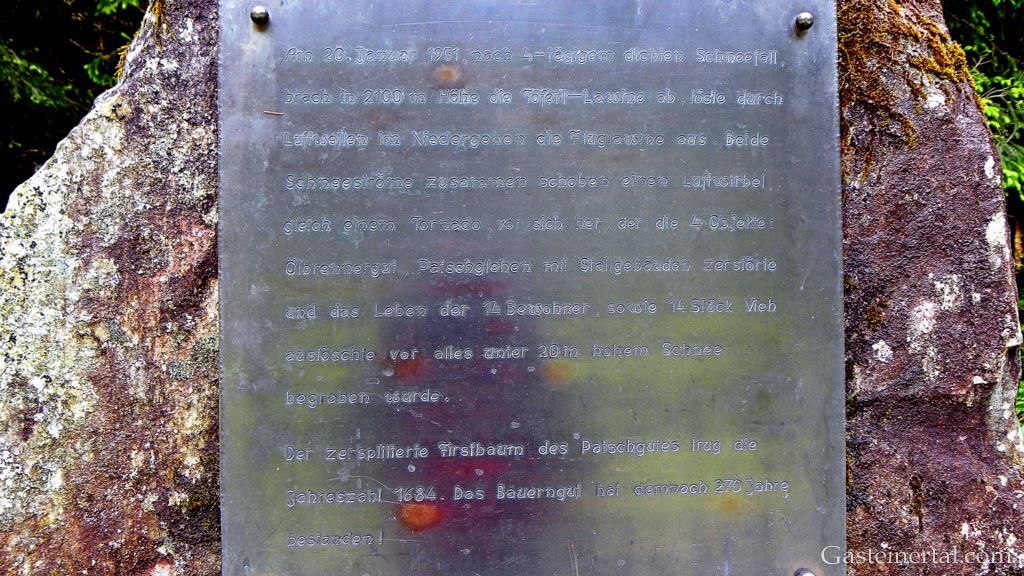 Am 20. Januar 1951, nach 4-tägigem dichten Schneefall,
brach in 2100 m Höhe die Töferl-Lawine ab, löste durch
Luftwellen im Niedergehen die Fluglawine aus. Beide
Schneeströme zusammen schoben einen Luftwirbel
gleich einem Tornado, vor sich her, der die 4 Objekte:
Ölbrennergut, Patschglehen mit Stallgebäuden zerstörte
und das Leben der 14 Bewohner, sowie 14 Stück Vieh
auslöschte vor alles unter 20 m hohem Schnee
begraben wurde.
Der zersplitterte Firstbaum des Patschgutes trug die
Jahreszahl 1684. Das Bauerngut hat demnach 270 Jahre
bestanden!
Gasteinertal.com